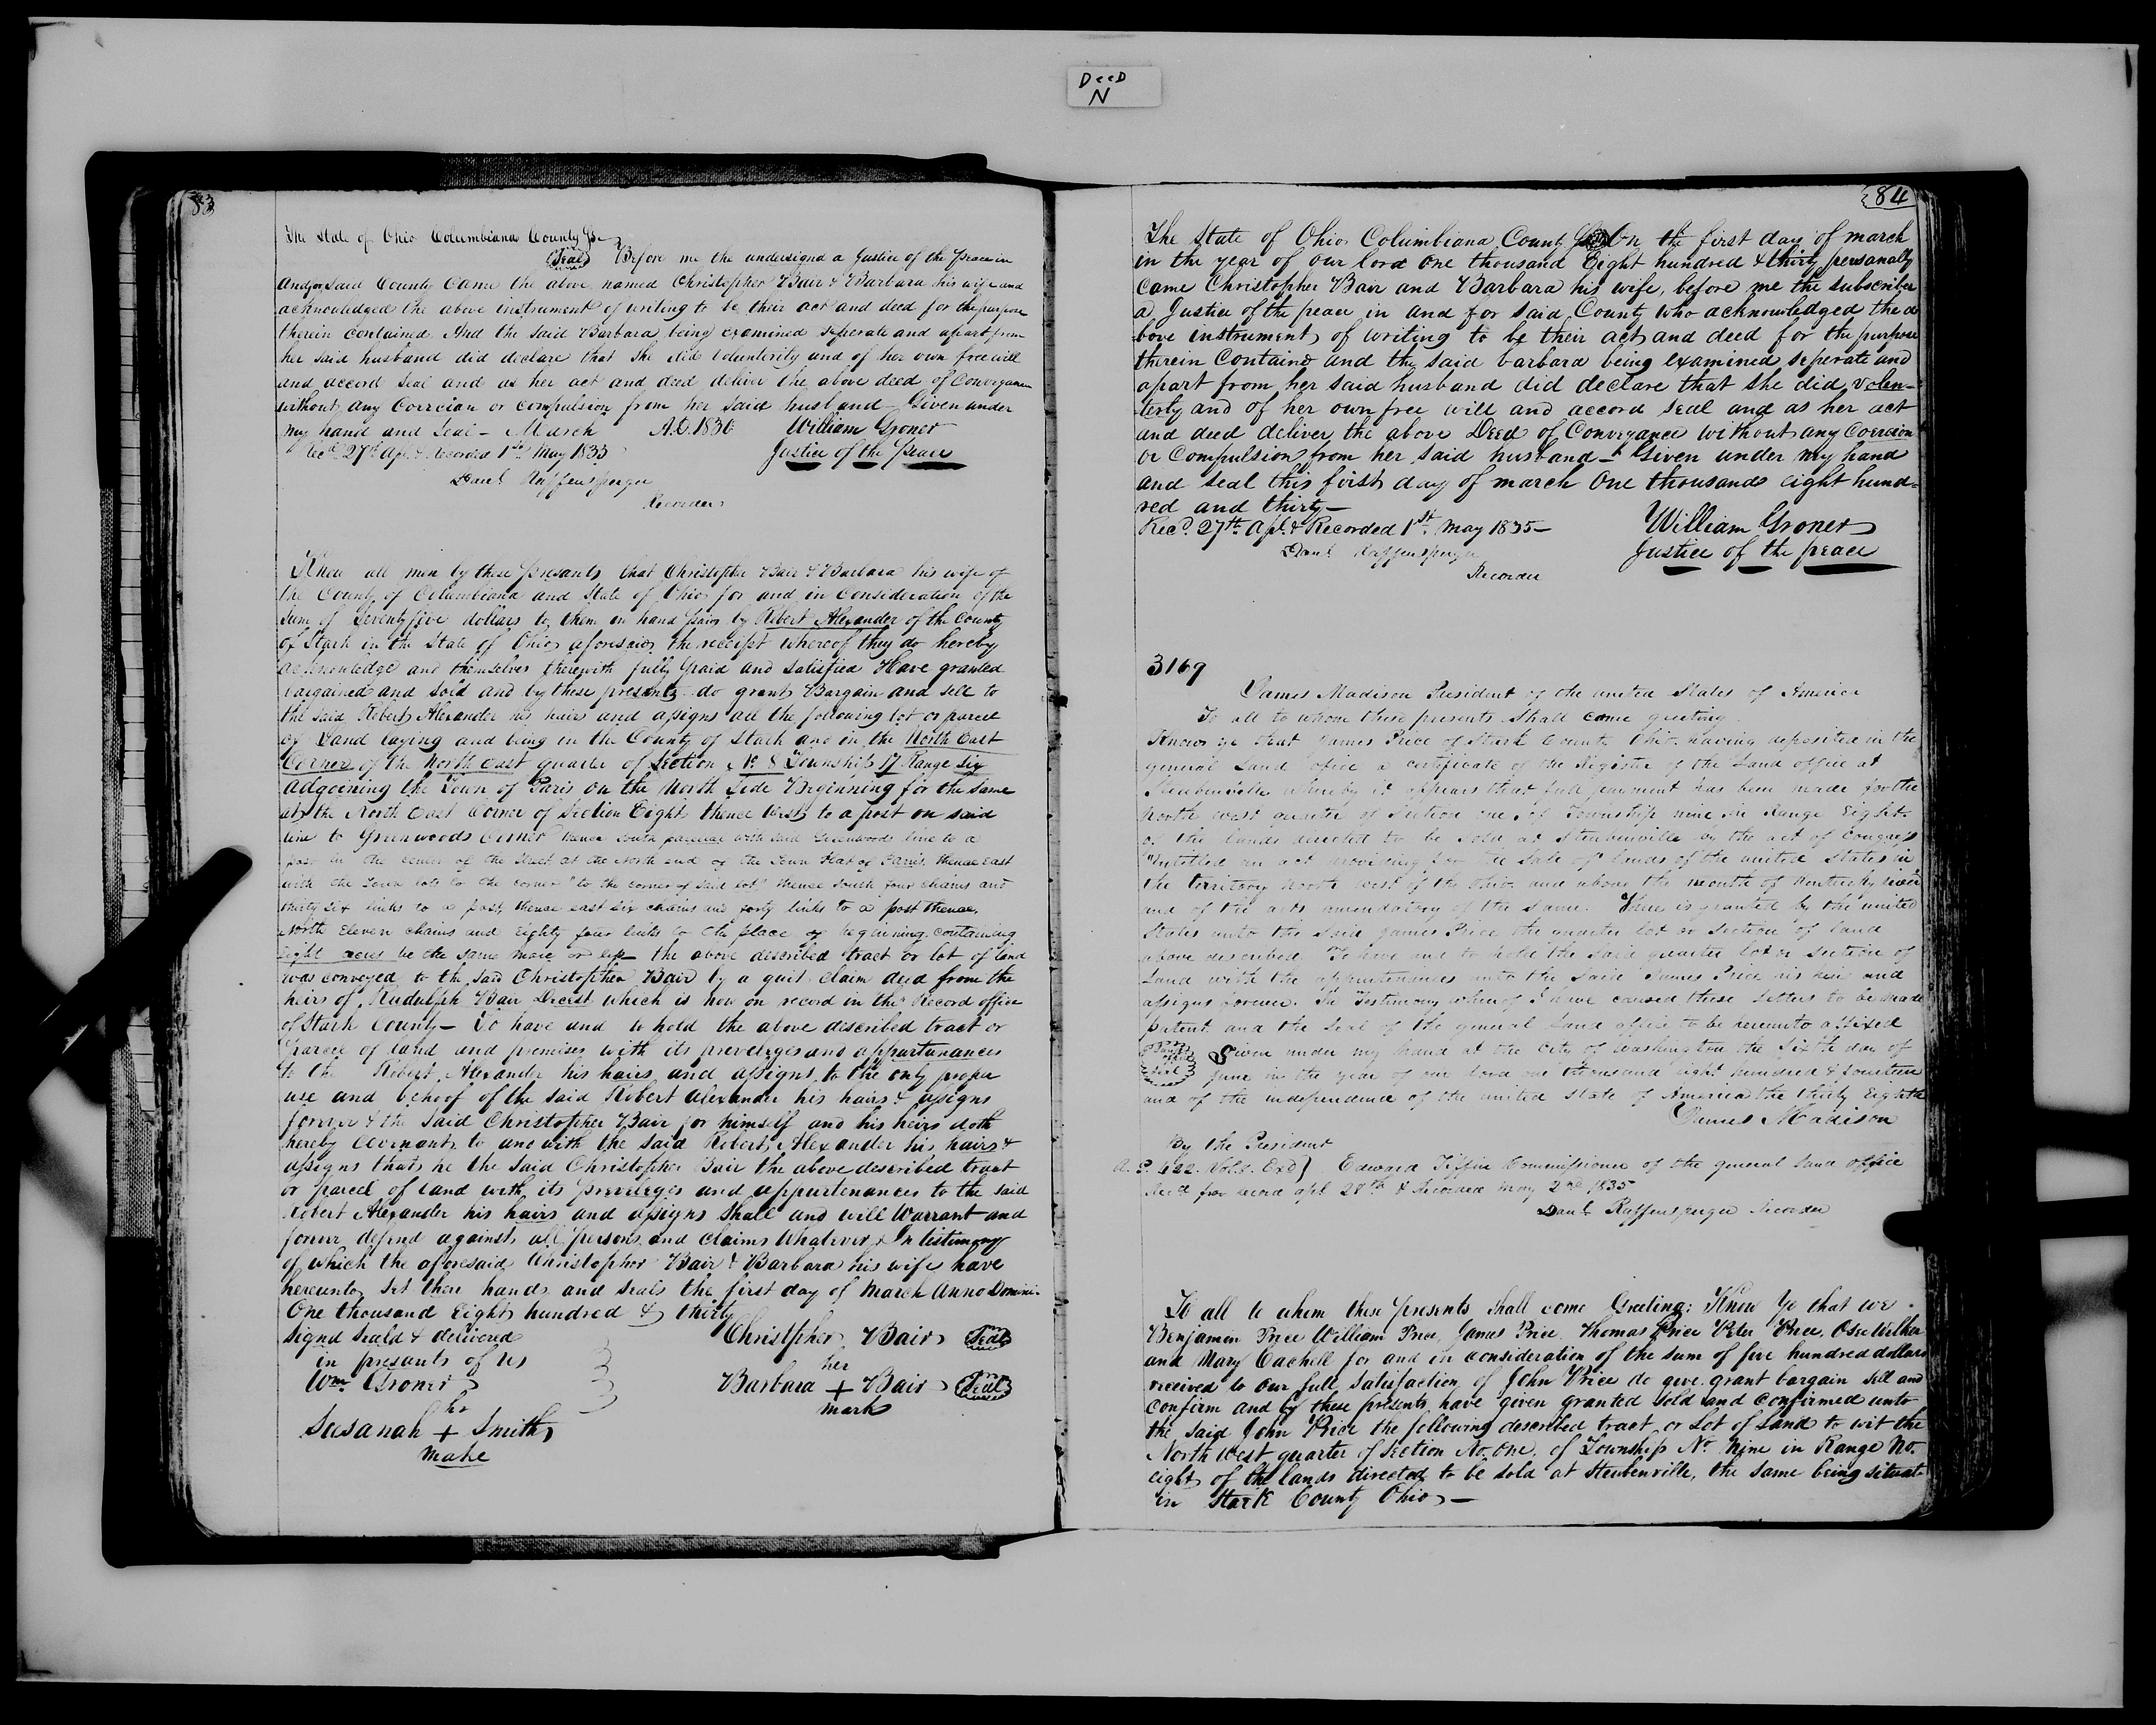 DeeD
N
83
The State of Ohio Columbiana County Ss
Seal Before me the undersigned a Justice of the Peace in
and for said County Came the above named Christopher Bair & Barbara his wife and
acknowledged the above instrument of writing to be their act and deed for the purpose
therein contained And the said Barbara being examined seperate and apart from
her said husband did declare that she did volunterily and of her own free will
and accord seal and as her act and deed deliver the above deed of Conveyance
without any Corrcian or compulsion from her said husband - Given under
my hand and seal - March A.D. 1830 William Groner
Recd 27th Apl & Recorded 1st May 1835 Justice of the Peace
Danl Raffensperger
Recorder
Know all men by these presents that Christopher Bair & Barbara his wife of
the County of Columbiana and State of Ohio for and in consideration of the
sum of Seventyfive dollars to them in hand paid by Robert Alexander of the County
of Stark in the State of Ohio aforesaid the receipt whereof they do hereby
acknowledge and themselves therewith fully paid and satisfied Have granted
bargained and sold and by these presents do grant Bargain and sell to
the said Robert Alexander his hairs and assigns all the following lot or parcel
of Land laying and being in the County of Stark and in the North East
Corner of the North East quarter of Section No 8 Township 17 Range Six
adgoining the Town of Paris on the North Side Beginning for the same
at the North East Corner of Section Eight thence West to a post on said
line to Greenwoods Corner thence South paralel with said Greenwoods line to a
post in the center of the Street at the North end of the Town Plat of Paris thence East
with the Town lots to the corner "to the corner of said lot" thence South four chains and
thirty six links to a post thence east six chains and forty links to a post thence
North Eleven chains and Eighty four links to the place of beginning containing
Eight acres be the same more or less the above described tract or lot of land
was conveyed to the said Christopher Bair by a quit claim deed from the
heirs of Rudulph Bair Decest which is now on record in the Record office
of Stark County - To have and to hold the above discribed tract or
parcel of land and premises with its preveleges and appurtunances
to the Robert Alexander his hairs and assigns to the only proper
use and behoof of the said Robert Alexander his hairs & assigns
forever & the said Christopher Bair for himself and his heirs doth
hereby covenant to and with the said Robert Alexander his hairs &
assigns that he the said Christopher Bair the above described tract
or parcel of land with its preveleges and appurtenances to the said
Robert Alexander his hairs and assigns shall and will Warrant and
forever defend against all persons and claims whatever In testimony
of which the aforesaid Christopher Bair & Barbara his wife have
hereunto set their hands and seals the first day of March Anno Domini
One thousand Eight hundred & thirty
Signd Seald & delivered Christpher Bair Seal
in presants of us her
Wm Groner Barbara + Bair Seal
hr mark
Susanah + Smith
make
84
The State of Ohio Columbiana County Ss On the first day of march
in the year of our lord one thousand Eight hundred & thirty personally
Came Christopher Bair and Barbara his wife, before me the subscriber
a Justice of the peace in and for said County who acknowledged the a
bove instrument of writing to be their act and deed for the purpose
therein Containd and the said barbara being examined seperate and
apart from her said husband did declare that she did volen-
terly and of her own free will and accord seal and as her act
and deed deliver the above Deed of Conveyance without any Coercion
or Compulsion from her said husband - Given under my hand
and seal this first day of march One thousand eight hund=
red and thirty -
Recd 27th Apl & Recorded 1st May 1835 - William Groner
Danl Raffensperger Justice of the peace
Recorder
3169
James Madison President of the united States of America
To all to whom these presents Shall come greeting
Know ye that James Price of Stark County Ohio having deposited in the
general Land office a certificate of the Register of the Land office at
Steubenville whereby it appears that full payment has been made for the
North west quarter of Section one of Township nine in Range Eight
of the lands directed to be sold at Steubenville by the act of Congress
"Entitled an act providing for the Sale of lands of the united States in
the territory North west of the Ohio and above the mouth of Kentucky river
and of the acts amendatory of the same. There is granted by the united
States unto the Said James Price the quarter lot or Section of land
above described To have and to hold the said quarter lot or Section of
Land with the appurtenances unto the Said James Price his heir and
assigns forever. In Testimony whereof I have caused these Letters to be made
patent and the seal of the general land office to be hereunto affixed
Given under my hand at the City of Washington the Sixth day of
June in the year of our Lord one thousand eight hundred & fourteen
and of the independence of the united State of America the thirty Eighth
James Madison
By the President
Edward Tiffin Commissioner of the general land office
Recd for record apl 28th & Recorded May 2nd 1835
Danl Raffensperger Recorder
To all to whom these presents shall come Greeting: Know Ye that we
Benjamin Price William Price, James Price Thomas Price Peter Price,
and Mary Cachell for and in consideration of the sum of five hundred dollars
received to our full satisfaction of John Price do give grant bargain sell and
confirm and by these presents have given granted sold and confirmed unto
the said John Price the following described tract or Lot of Land to wit the
North West quarter of Section No. One of Township No Nine in Range No.
eight of the lands directed to be sold at Steubenville, the same being situat
in Stark County Ohio -